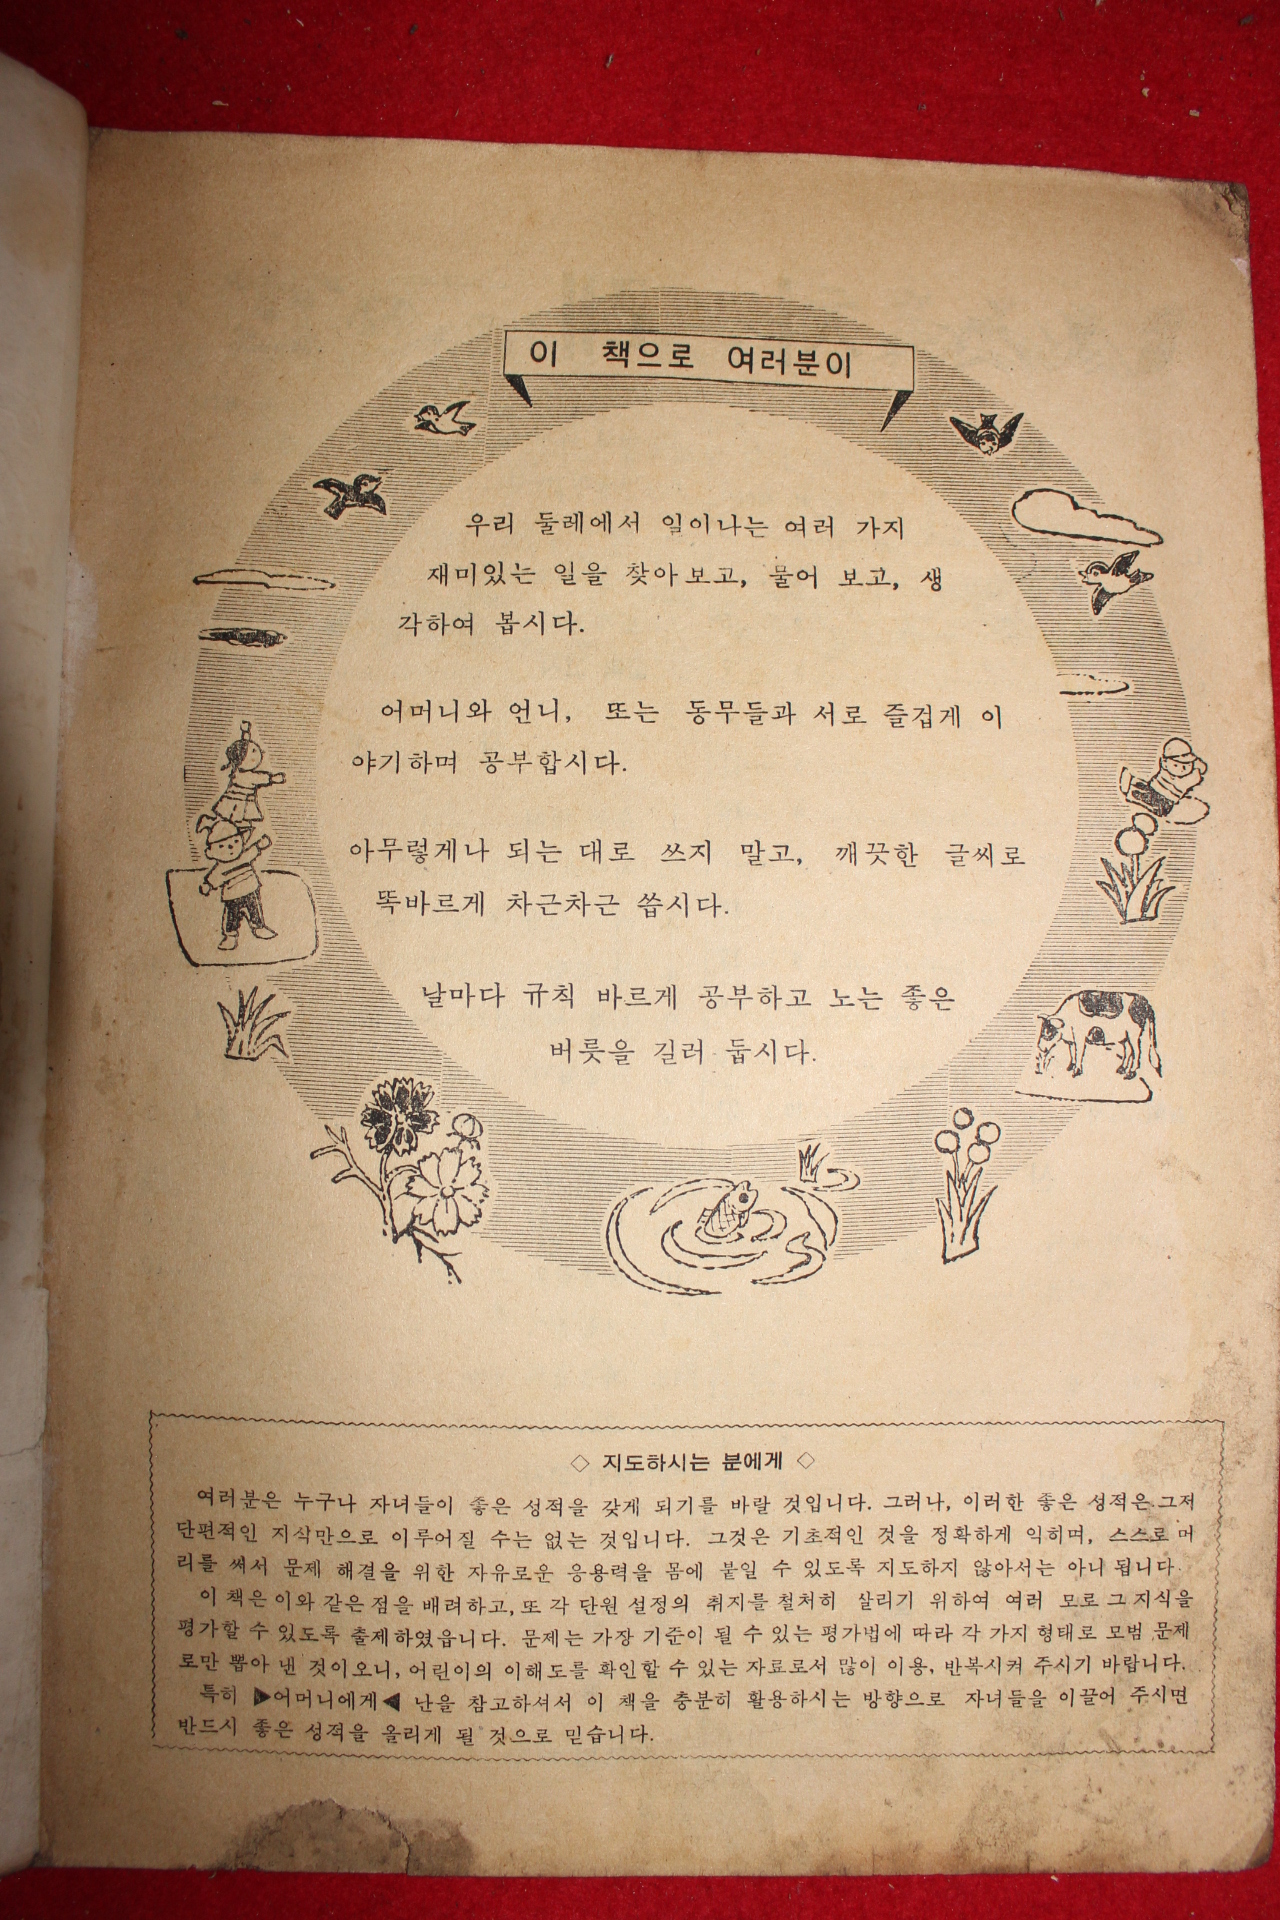 이 책으로 여러분이
우리 둘레에서 일이나는 여러 가지
재미있는 일을 찾아보고, 물어 보고, 생
각하여 봅시다.
어머니와 언니, 또는 동무들과 서로 즐겁게 이
야기하며 공부합시다.
아무렇게나 되는 대로 쓰지 말고, 깨끗한 글씨로
똑바르게 차근차근 씁시다.
날마다 규칙 바르게 공부하고 노는 좋은
버릇을 길러 둡시다.
◇ 지도하시는 분에게 ◇
여러분은 누구나 자녀들이 좋은 성적을 갖게 되기를 바랄 것입니다. 그러나, 이러한 좋은 성적은 그저
단편적인 지식만으로 이루어질 수는 없는 것입니다. 그것은 기초적인 것을 정확하게 익히며, 스스로 머
리를 써서 문제 해결을 위한 자유로운 응용력을 몸에 붙일 수 있도록 지도하지 않아서는 아니 됩니다.
이 책은 이와 같은 점을 배려하고, 또 각 단원 설정의 취지를 철처히 살리기 위하여 여러 모로 그 지식을
평가할 수 있도록 출제하였읍니다. 문제는 가장 기준이 될 수 있는 평가법에 따라 각 가지 형태로 모범 문제
로만 뽑아 낸 것이오니, 어린이의 이해도를 확인할 수 있는 자료로서 많이 이용, 반복시켜 주시기 바랍니다.
특히 ▶어머니에게◀ 난을 참고하셔서 이 책을 충분히 활용하시는 방향으로 자녀들을 이끌어 주시면
반드시 좋은 성적을 올리게 될 것으로 믿습니다.